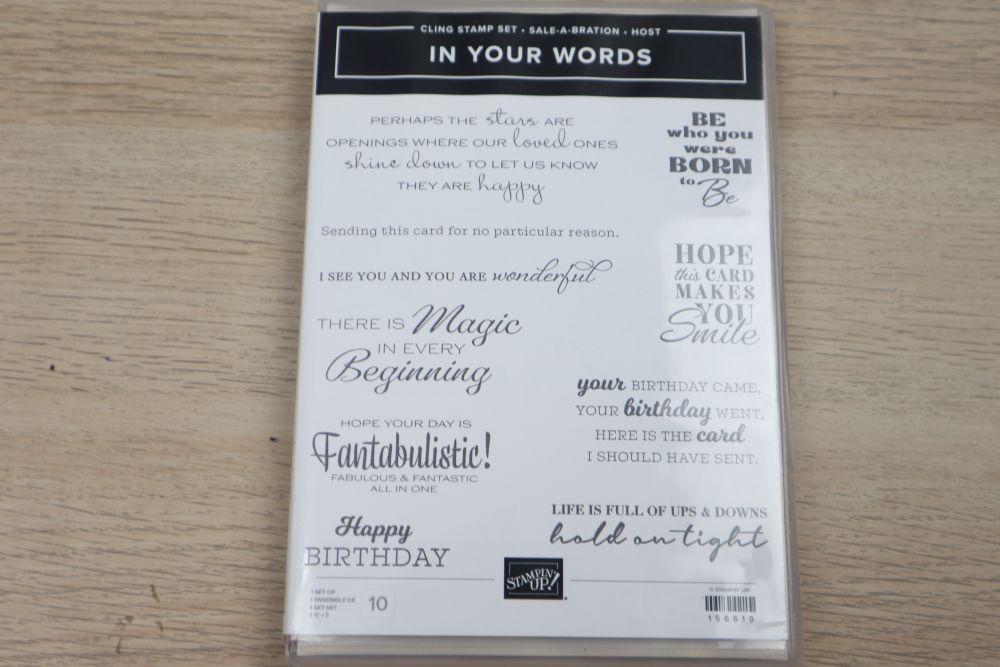 CLING STAMP SET • SALE-A-BRATION • HOST
IN YOUR WORDS
PERHAPS THE stars ARE
OPENINGS WHERE OUR loved ONES
shine down TO LET US KNOW
THEY ARE happy
BE
who you
were
BORN
to Be
Sending this card for no particular reason.
I SEE YOU AND YOU ARE wonderful
HOPE
this CARD
MAKES
YOU
Smile
THERE IS Magic
IN EVERY
Beginning
your BIRTHDAY CAME,
YOUR birthday WENT,
HERE IS THE card
I SHOULD HAVE SENT.
HOPE YOUR DAY IS
Fantabulistic!
FABULOUS & FANTASTIC
ALL IN ONE
LIFE IS FULL OF UPS & DOWNS
hold on tight
Happy
BIRTHDAY
STAMPIN' UP!
SET OF
ENSEMBLE DE
SET MIT
セット
10
© STAMPIN' UP!
156619